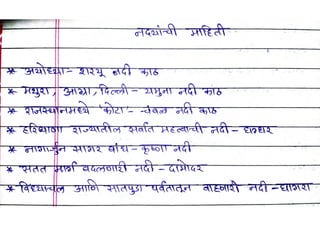 नदयांची माहिती
* अयोध्या- शरयू नदी काठ
* मथुरा, आग्रा, दिल्ली- यमुना नदी काठ
* राजस्थानमध्ये 'कोटा'- चंबळ नदी काठ
* हरियाणा राज्यातील सर्वात महत्वाची नदी- घग्घर
* नागार्जुन सागर बांध- कृष्णा नदी
* सतत मार्ग बदलणारी नदी- दामोदर
* विंध्याचल आणि सातपुडा पर्वतातून वाहणारी नदी- घागरा